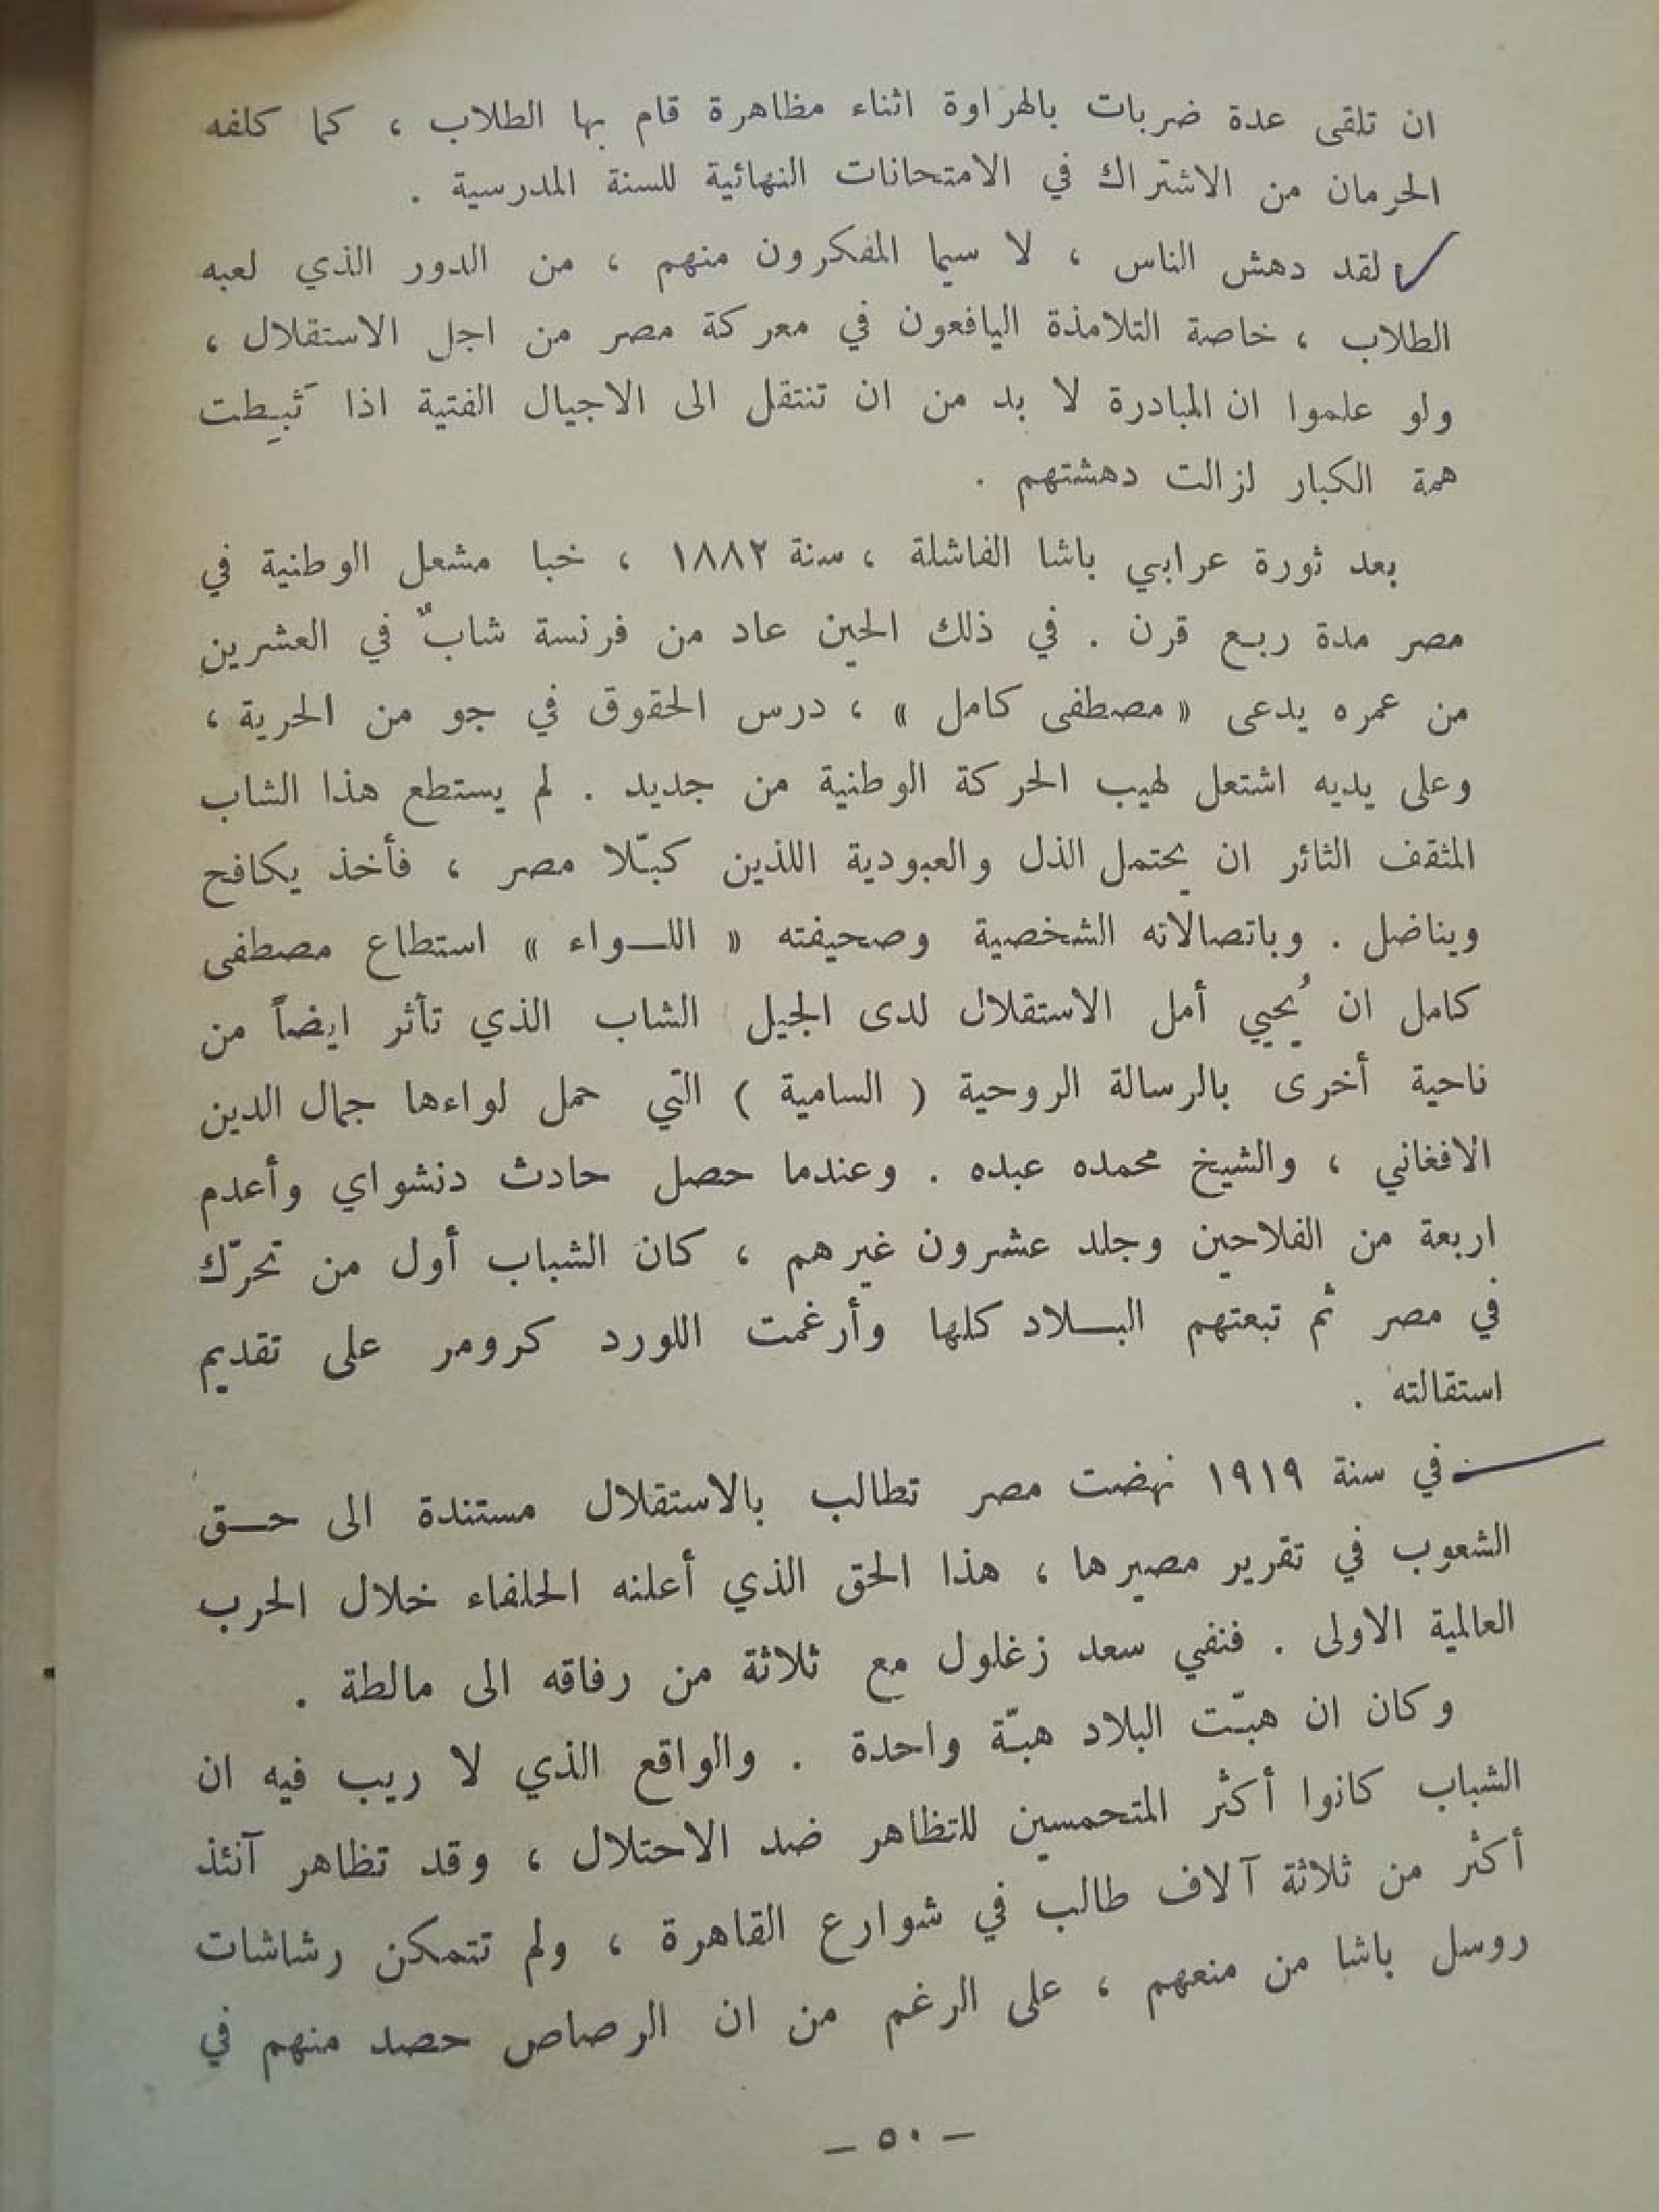 ان تلقى عدة ضربات بالهراوة اثناء مظاهرة قام بها الطلاب ، كما كلفه
الحرمان من الاشتراك في الامتحانات النهائية للسنة المدرسية .
لقد دهش الناس ، لا سيما المفكرون منهم ، من الدور الذي لعبه
الطلاب ، خاصة التلامذة اليافعون في معركة مصر من اجل الاستقلال ،
ولو علموا ان المبادرة لا بد من ان تنتقل الى الاجيال الفتية اذا ثَبِطت
همة الكبار لزالت دهشتهم .
بعد ثورة عرابي باشا الفاشلة ، سنة ١٨٨٢ ، خبا مشعل الوطنية في
مصر مدة ربع قرن . في ذلك الحين عاد من فرنسة شابٌ في العشرين
من عمره يدعى « مصطفى كامل » ، درس الحقوق في جو من الحرية ،
وعلى يديه اشتعل لهيب الحركة الوطنية من جديد . لم يستطع هذا الشاب
المثقف الثائر ان يحتمل الذل والعبودية اللذين كبّلا مصر ، فأخذ يكافح
ويناضل . وباتصالاته الشخصية وصحيفته « اللـواء » استطاع مصطفى
كامل ان يُحيي أمل الاستقلال لدى الجيل الشاب الذي تأثر ايضاً من
ناحية أخرى بالرسالة الروحية ( السامية ) التي حمل لواءها جمال الدين
الافغاني ، والشيخ محمده عبده . وعندما حصل حادث دنشواي وأعدم
اربعة من الفلاحين وجلد عشرون غيرهم ، كان الشباب أول من تحرّك
في مصر ثم تبعتهم البـلاد كلها وأرغمت اللورد كرومر على تقديم
استقالته .
في سنة ١٩١٩ نهضت مصر تطالب بالاستقلال مستندة الى حـق
الشعوب في تقرير مصيرها ، هذا الحق الذي أعلنه الحلفاء خلال الحرب
العالمية الاولى . فنفي سعد زغلول مع ثلاثة من رفاقه الى مالطة .
وكان ان هبّت البلاد هبّة واحدة . والواقع الذي لا ريب فيه ان
الشباب كانوا أكثر المتحمسين للتظاهر ضد الاحتلال ، وقد تظاهر آنئذ
أكثر من ثلاثة آلاف طالب في شوارع القاهرة ، ولم تتمكن رشاشات
روسل باشا من منعهم ، على الرغم من ان الرصاص حصد منهم في
— ٥٠ —